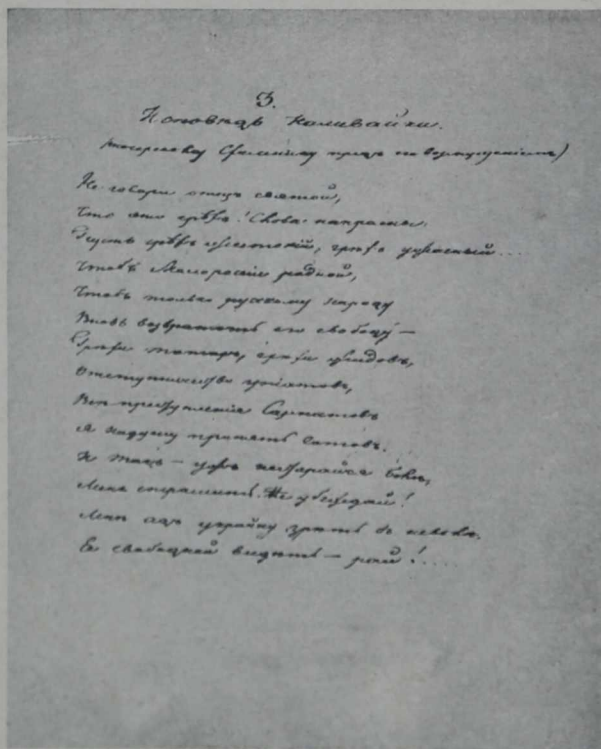 3.
Исповѣдь Наливайки.
Не говори отецъ святой,
Что это грѣхъ! Слова напрасны.
Пусть грѣхъ жестокій, грѣхъ ужасный...
Чтобъ Малоросіи родной,
Чтобъ только русскому народу
Вновь возвратить его свободу —
Грѣхи татаръ, грѣхи жидовъ,
Отступничество уніятовъ,
Все преступленія Сарматовъ
Я надушу принять готовъ.
И такъ — ужъ нестарайся болѣ,
Меня страшить. Не убеждай!
Мнѣ адъ украйну зрѣть въ неволѣ.
Ее свободной видѣть — рай!....